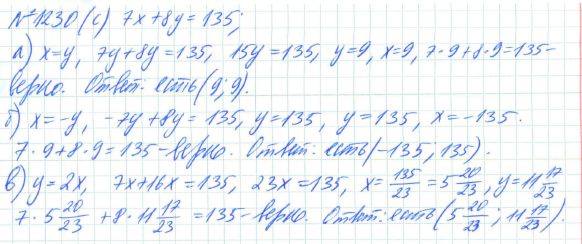 №1230(с) 7x+8y=135;
а) x=y, 7y+8y=135, 15y=135, y=9, x=9, 7·9+8·9=135-
верно. Ответ: есть (9; 9).
б) x=-y, -7y+8y=135, y=135, y=135, x=-135.
7·9+8·9=135-верно. Ответ: есть (-135; 135).
в) y=2x, 7x+16x=135, 23x=135, x=135/23=5 20/23, y=11 17/23
7·5 20/23+8·11 17/23=135-верно. Ответ: есть (5 20/23; 11 17/23).